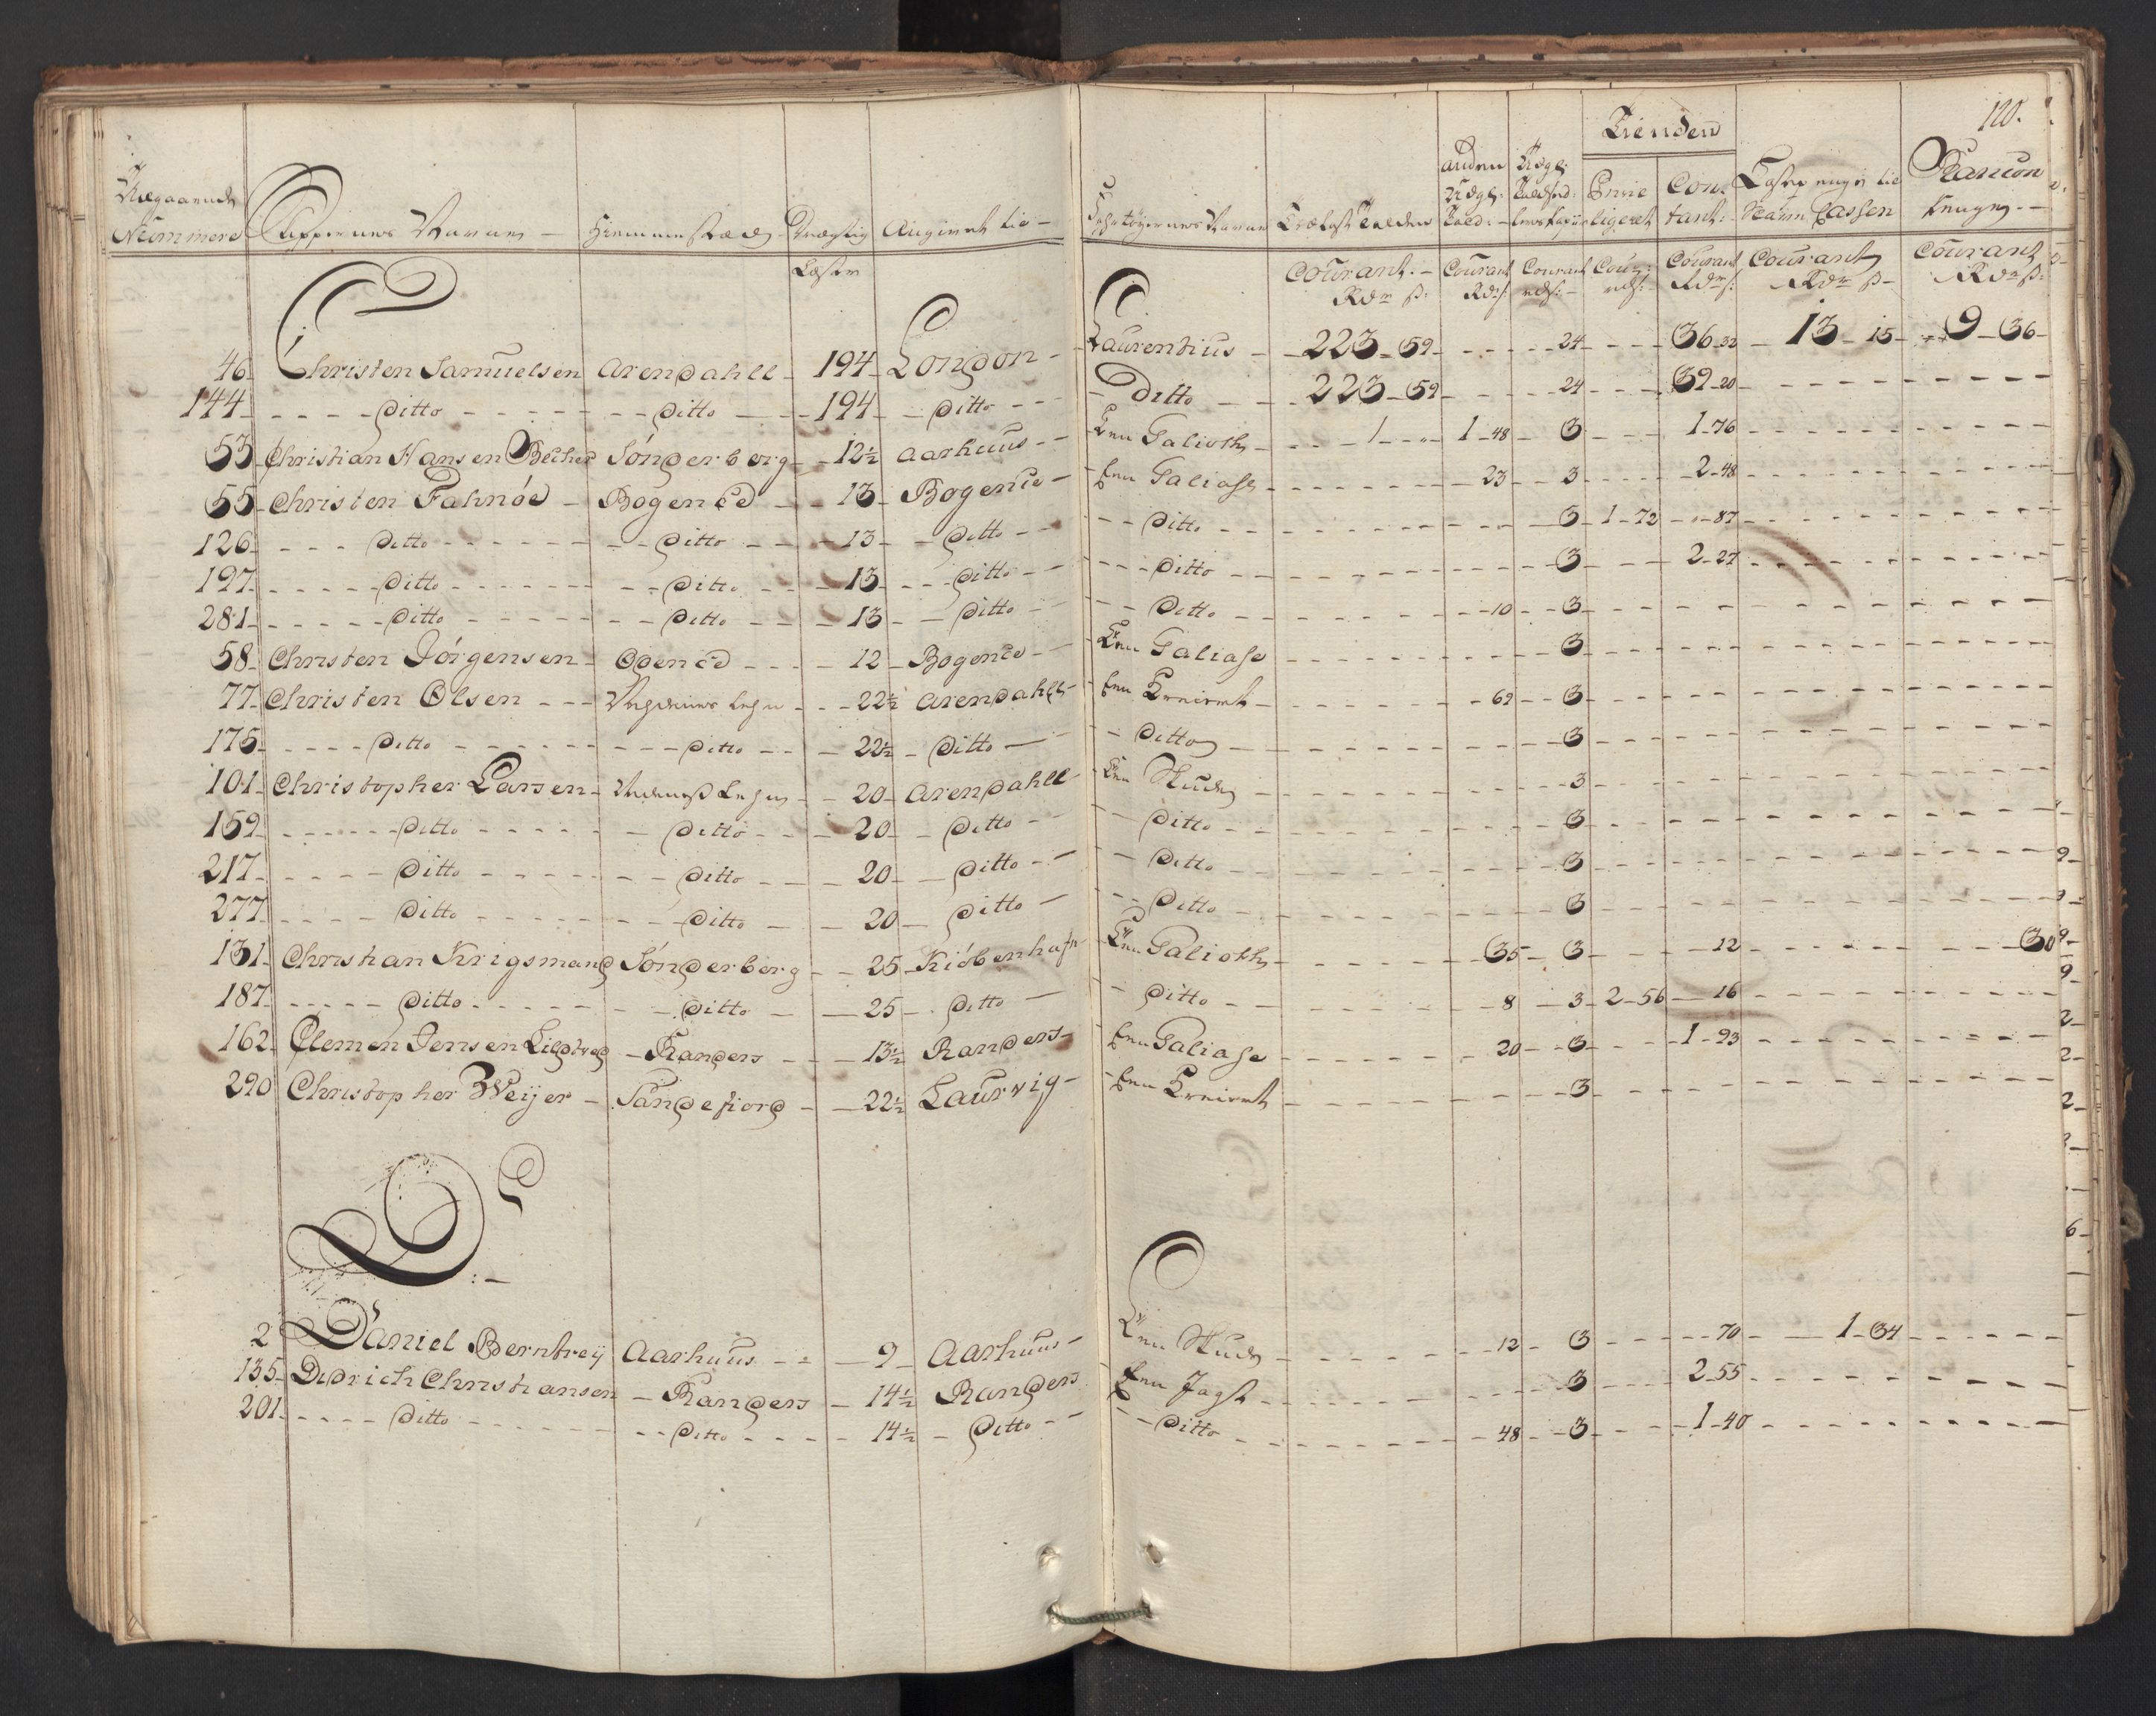 120.
Udgaaende Nummere
Skippernes Navne
Hiemmestæd
Drægtig
Læster
Angivet til
Fahrtöyernes Navne
Trælast Tolden
Courant Rdr ß:
anden Udgl: Told:
Courant Rdß:
Udgl:
Courant rdß:
Tienden
Privi ligeret
Cour: rdß:
Con tant:
Courant Rdß:
Læste penge til Navm Cassen
Courant Rdr ß
Rancon Penge
Courant Rdr ß:
46 Christen Samuelsen Arendahll 194 London Laurentius 223 59 24 36 32 13 15 9 36
144 ditto ditto 194 ditto ditto 223 59 24 39 20
53 Christian Hansen Becher Sönderborg 12½ Aarhuus Een Galioth 1 1 48 3 1 76
55 Christen Fahnöe Bogence 13 Bogence Een Galiase 23 3 2 48
126 ditto ditto 13 ditto ditto 3 1 72 87
197 ditto ditto 13 ditto ditto 3 2 27
281 ditto ditto 13 ditto ditto 10 3
58 Christen Jörgensen Odence 12 Bogence Een Galiase 3
77 Christen Olsen 22½ Arendahll Een Kreiert 69 3
175 ditto ditto 22½ ditto ditto 3
101 Christopher Larsen 20 Arendahll Een Skude 3
159 ditto ditto 20 ditto ditto 3
217 ditto ditto 20 ditto ditto 3
277 ditto ditto 20 ditto ditto 3
131 Christian Krigsmand Sönderborg 25 Kiöbenhafn Een Galioth 35 3 12 30
187 ditto ditto 25 ditto ditto 8 3 2 56 16
162 Clemen Jensen Randers 13½ Randers Een Galiase 20 3 1 93
290 Christopher Weijer Sandefiord 22½ Laurvig Een Kreiert 3
D:
2 Daniel Berntreij Aarhuus 9 Aarhuus Een Skude 12 3 70 1 34
135 Didrich Christiansen Randers 14½ Randers Een Jagt 3 2 55
201 ditto ditto 14½ ditto ditto 48 3 1 40